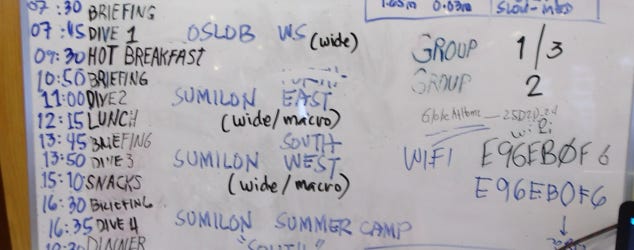 07:30 BRIEFING
07:45 DIVE 1 OSLOB WS (wide)
09:30 HOT BREAKFAST
10:50 BRIEFING
11:00 DIVE 2 SUMILON EAST
12:15 LUNCH (wide/macro)
13:45 BRIEFING SOUTH
13:50 DIVE 3 SUMILON WEST
15:10 SNACKS (wide/macro)
16:30 BRIEFING
16:35 DIVE 4 SUMILON SUMMER CAMP
DINNER "SOUTH"
1.65m 0.03m
GROUP 1/3
GROUP 2
WIFI E96EBØF6
E96EBØF6